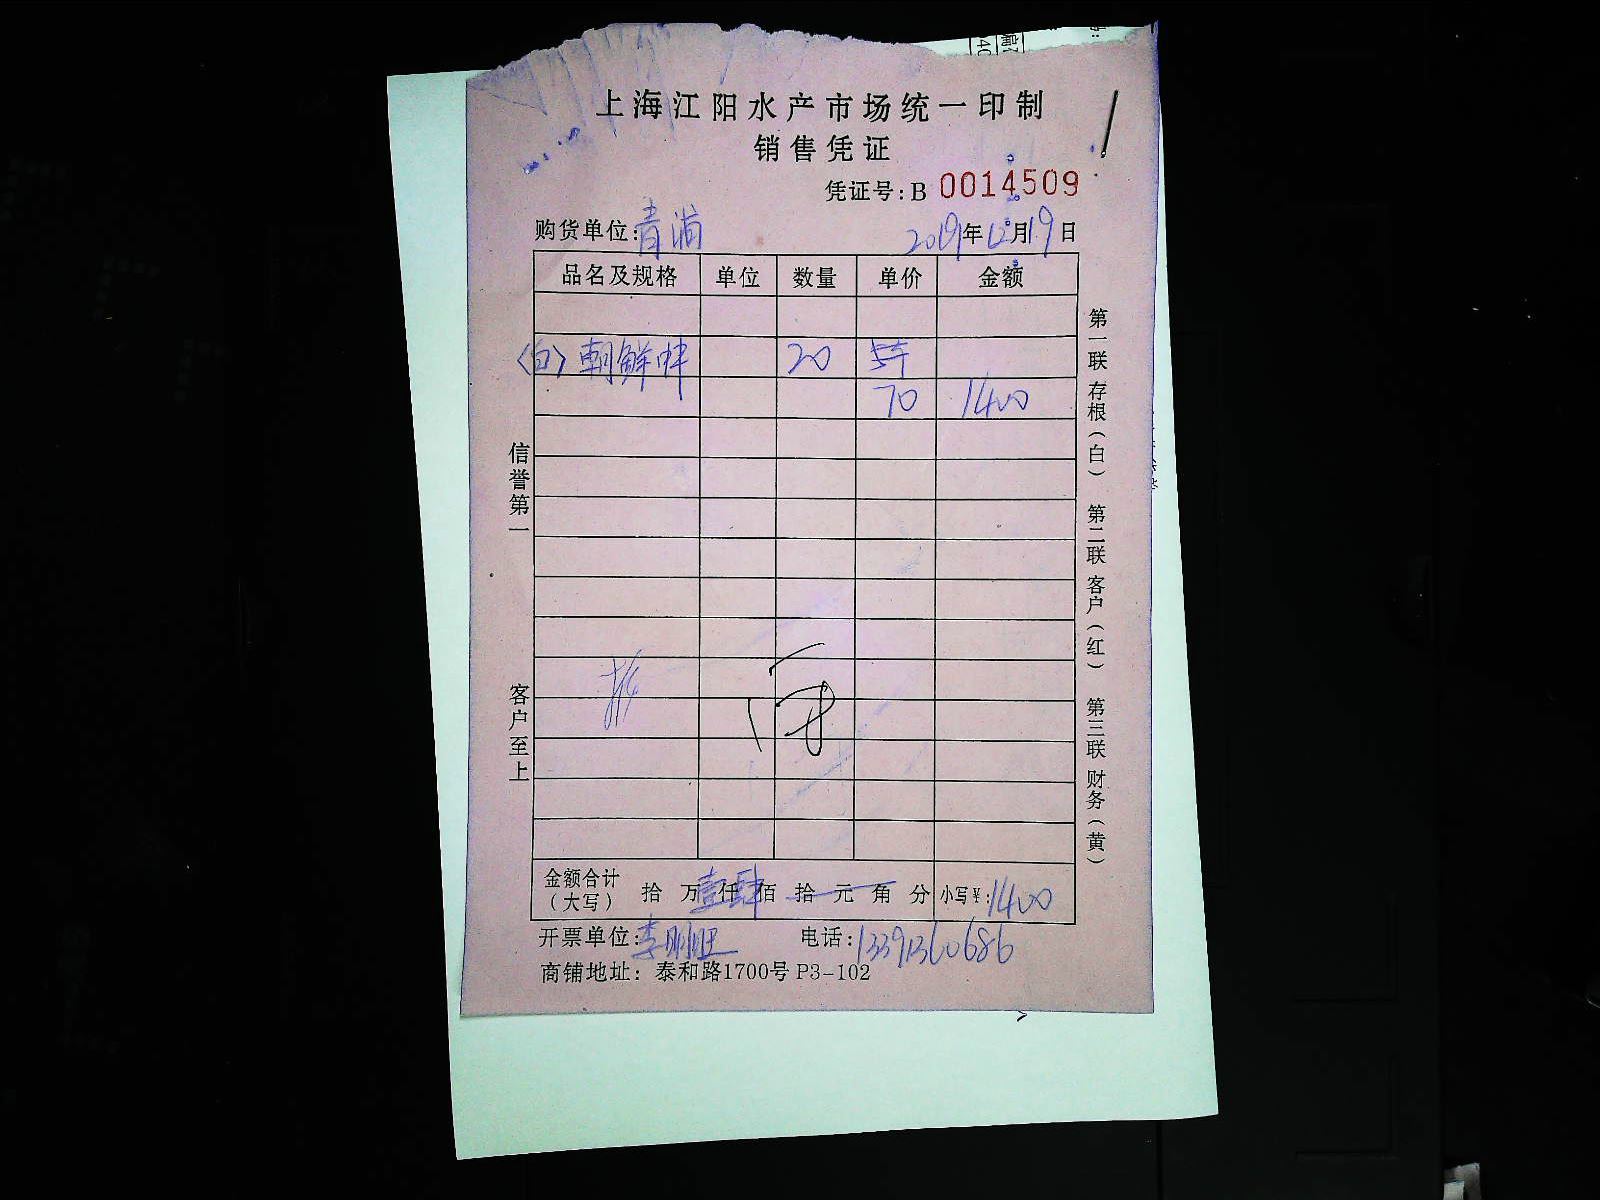 上海江阳水产市场统一印制
销售凭证
凭证号：B 0014509
购货单位：青浦 2019年12月19日
品名及规格 单位 数量 单价 金额
〈白〉朝鲜蚌 20
70 1400
信誉第一 客户至上
第一联 存根（白） 第二联 客户（红） 第三联 财务（黄）
金额合计（大写） 拾 万壹仟肆佰 拾 元 角 分 小写¥：1400
开票单位： 电话：13391360686
商铺地址：泰和路1700号 P3-102